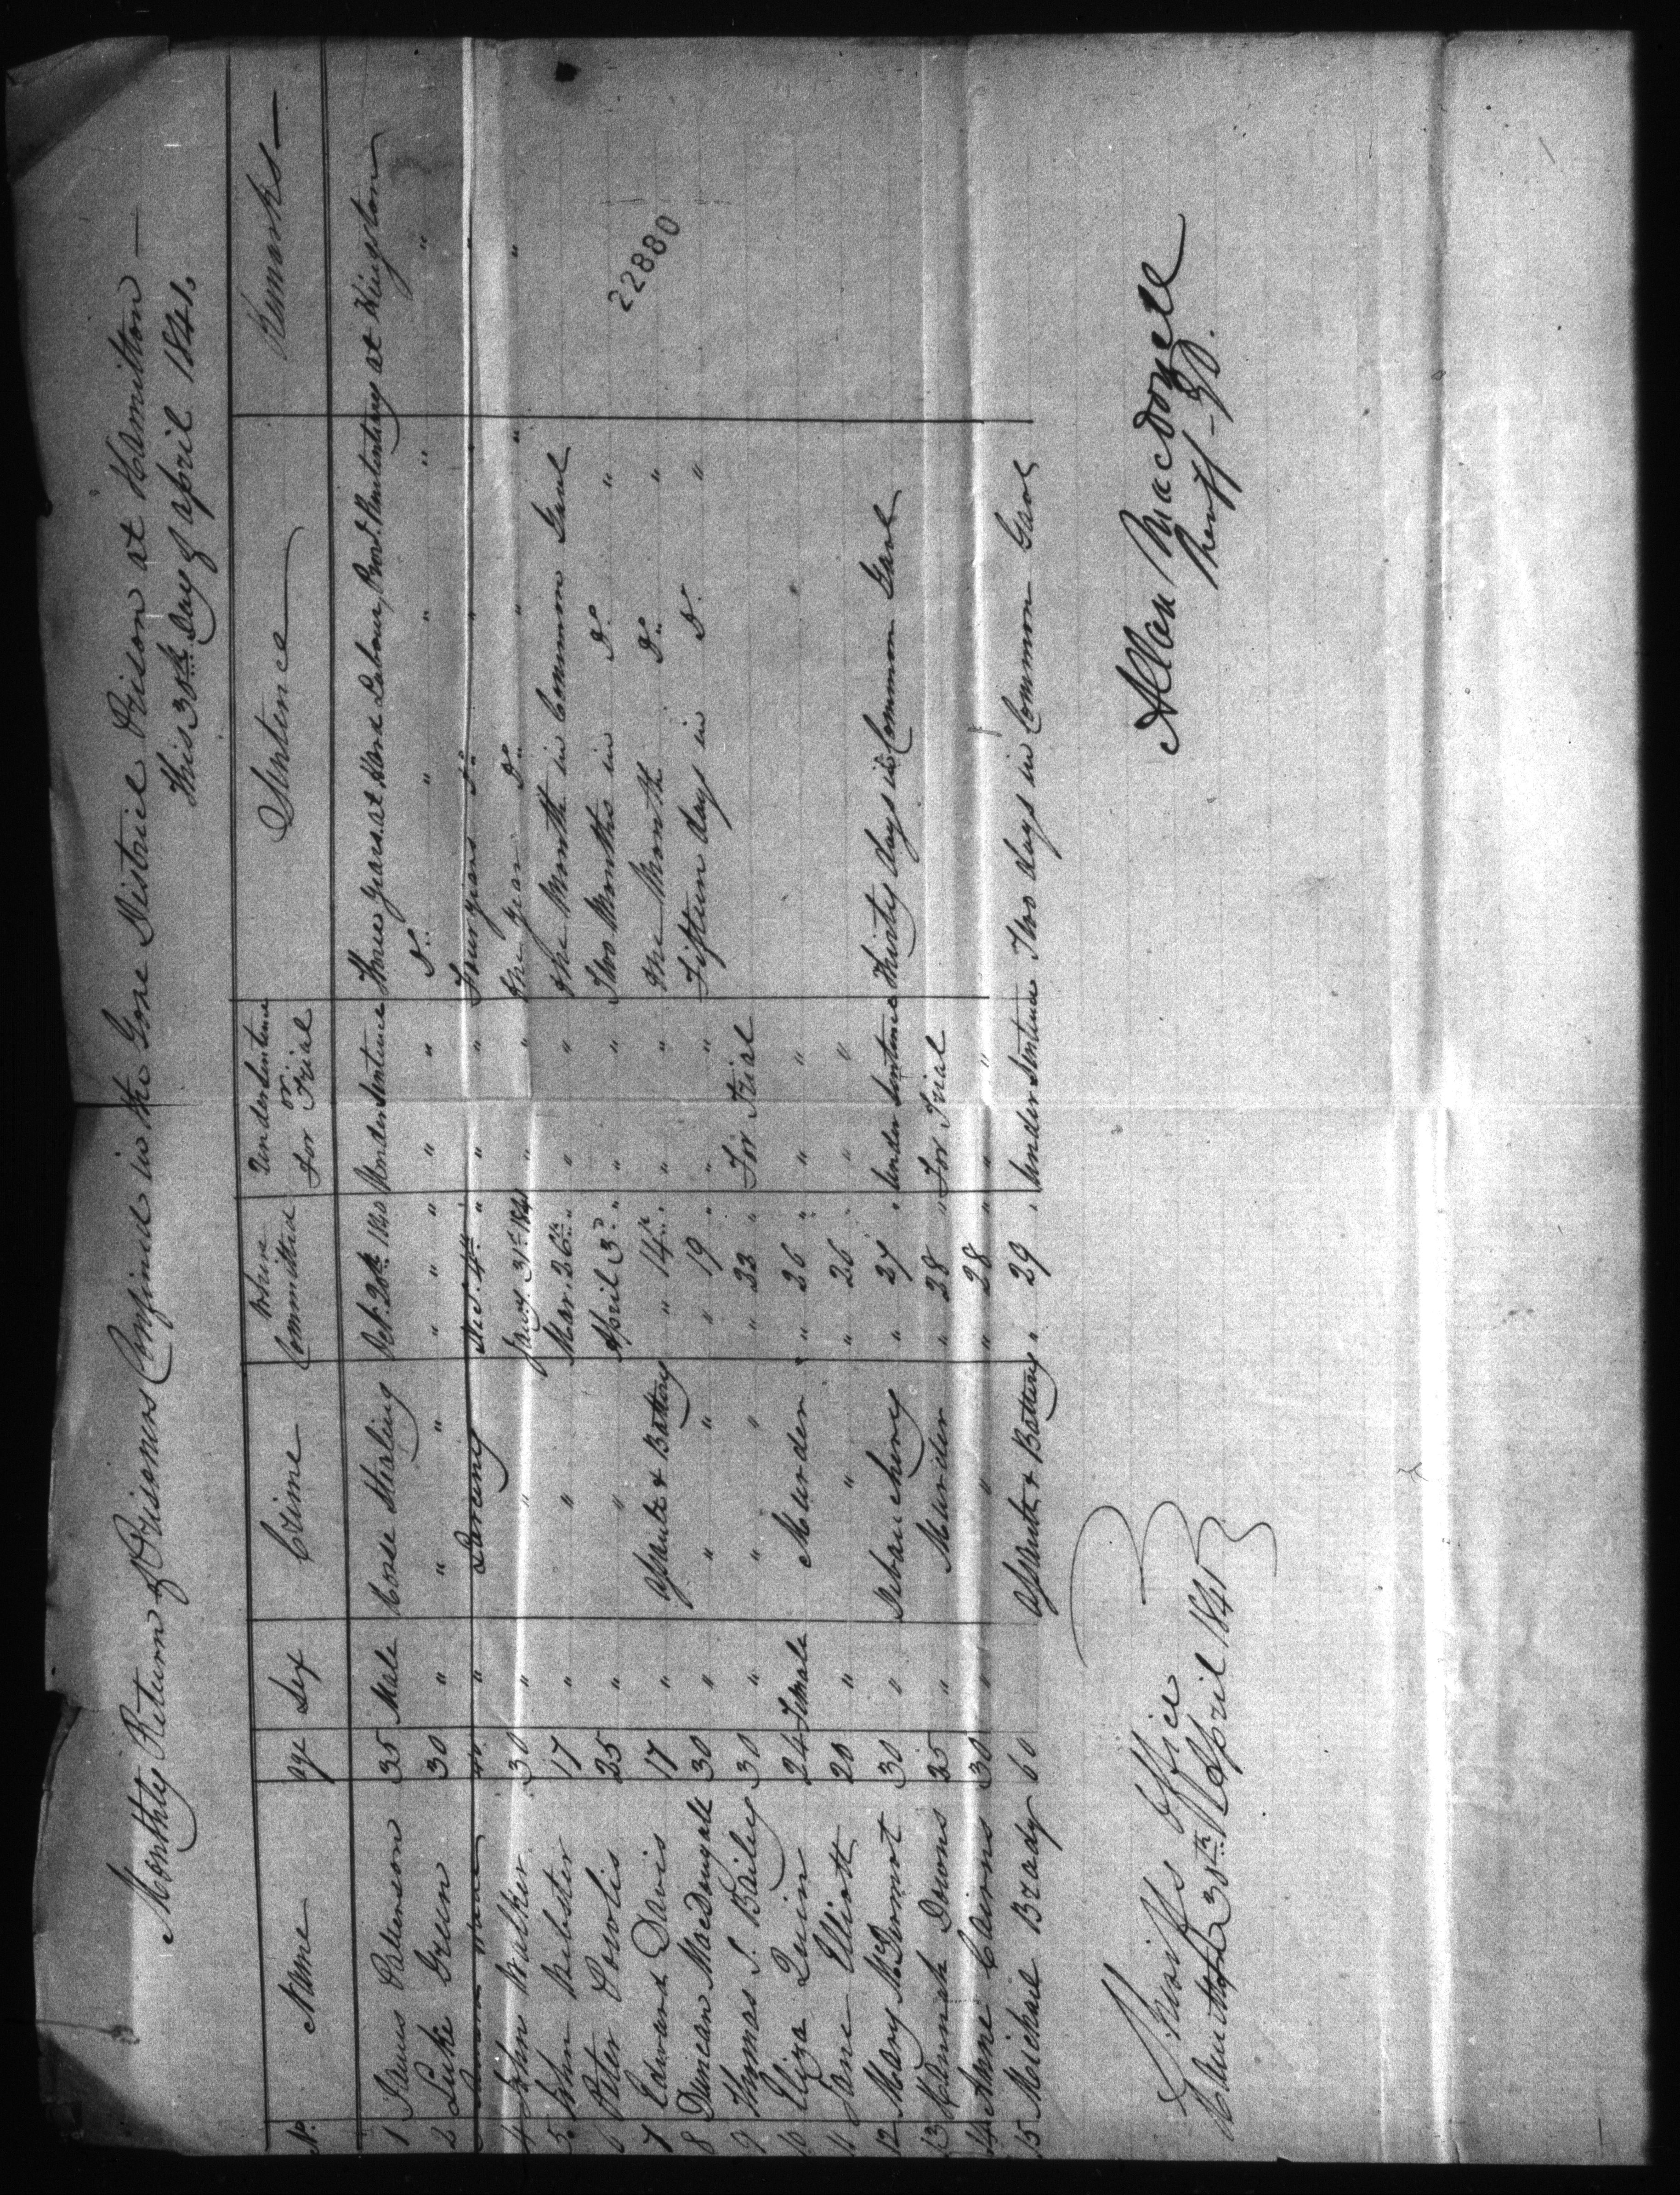 Monthly Return of Prisoners Confined in the Gore District Prison at Hamilton —
this 30th Day of April 1841.
No. Name age Sex Crime When Committed Under Sentence or for Trial Sentence Remarks —
1 James Patterson 35 Male Horse Stealing Oct. 20th 1840 Under Sentence Three Years at Hard Labour, Prov.l Penitentiary at Kingston
2 Luke Green 30 " " " " " " " " " Do. " " " "
40 " Larceny Dec. 4th " " " Four years Do. " " "
4 John Walker 30 " " Jany. 31st 1841 " " One Year Do. " " "
5 John Webster 17 " " Mar. 26th " " " One Month in Common Gaol
6 Peter 25 " " April 3d " " " Two Months in Do. "
7 Edward Davis 17 " Assault & Battery " 14th " " " One Month Do. "
8 Duncan MacDougall 30 " " " " 19 " " " Fifteen days in Do. "
9 Thomas S. Bailey 30 " " " " 22 " For Trial
10 Eliza Quinn 24 Female Murder " 26 " " " "
11 Jane Elliott 20 " " " 26 " " "
12 Mary McDermot 30 " Debauchery " 27 " Under Sentence Thirty days in Common Gaol
13 Hannah Downs 25 " Murder " 28 " For Trial
14 Anne Cairns 30 " " " 28 " " "
15 Michael Brady 60 Assault & Battery " 29 " Under Sentence Two days in Common Gaol
22880
Sheriffs Office
Hamilton 30th April 1841
Allan Macdonell
Sheriff — G.D.